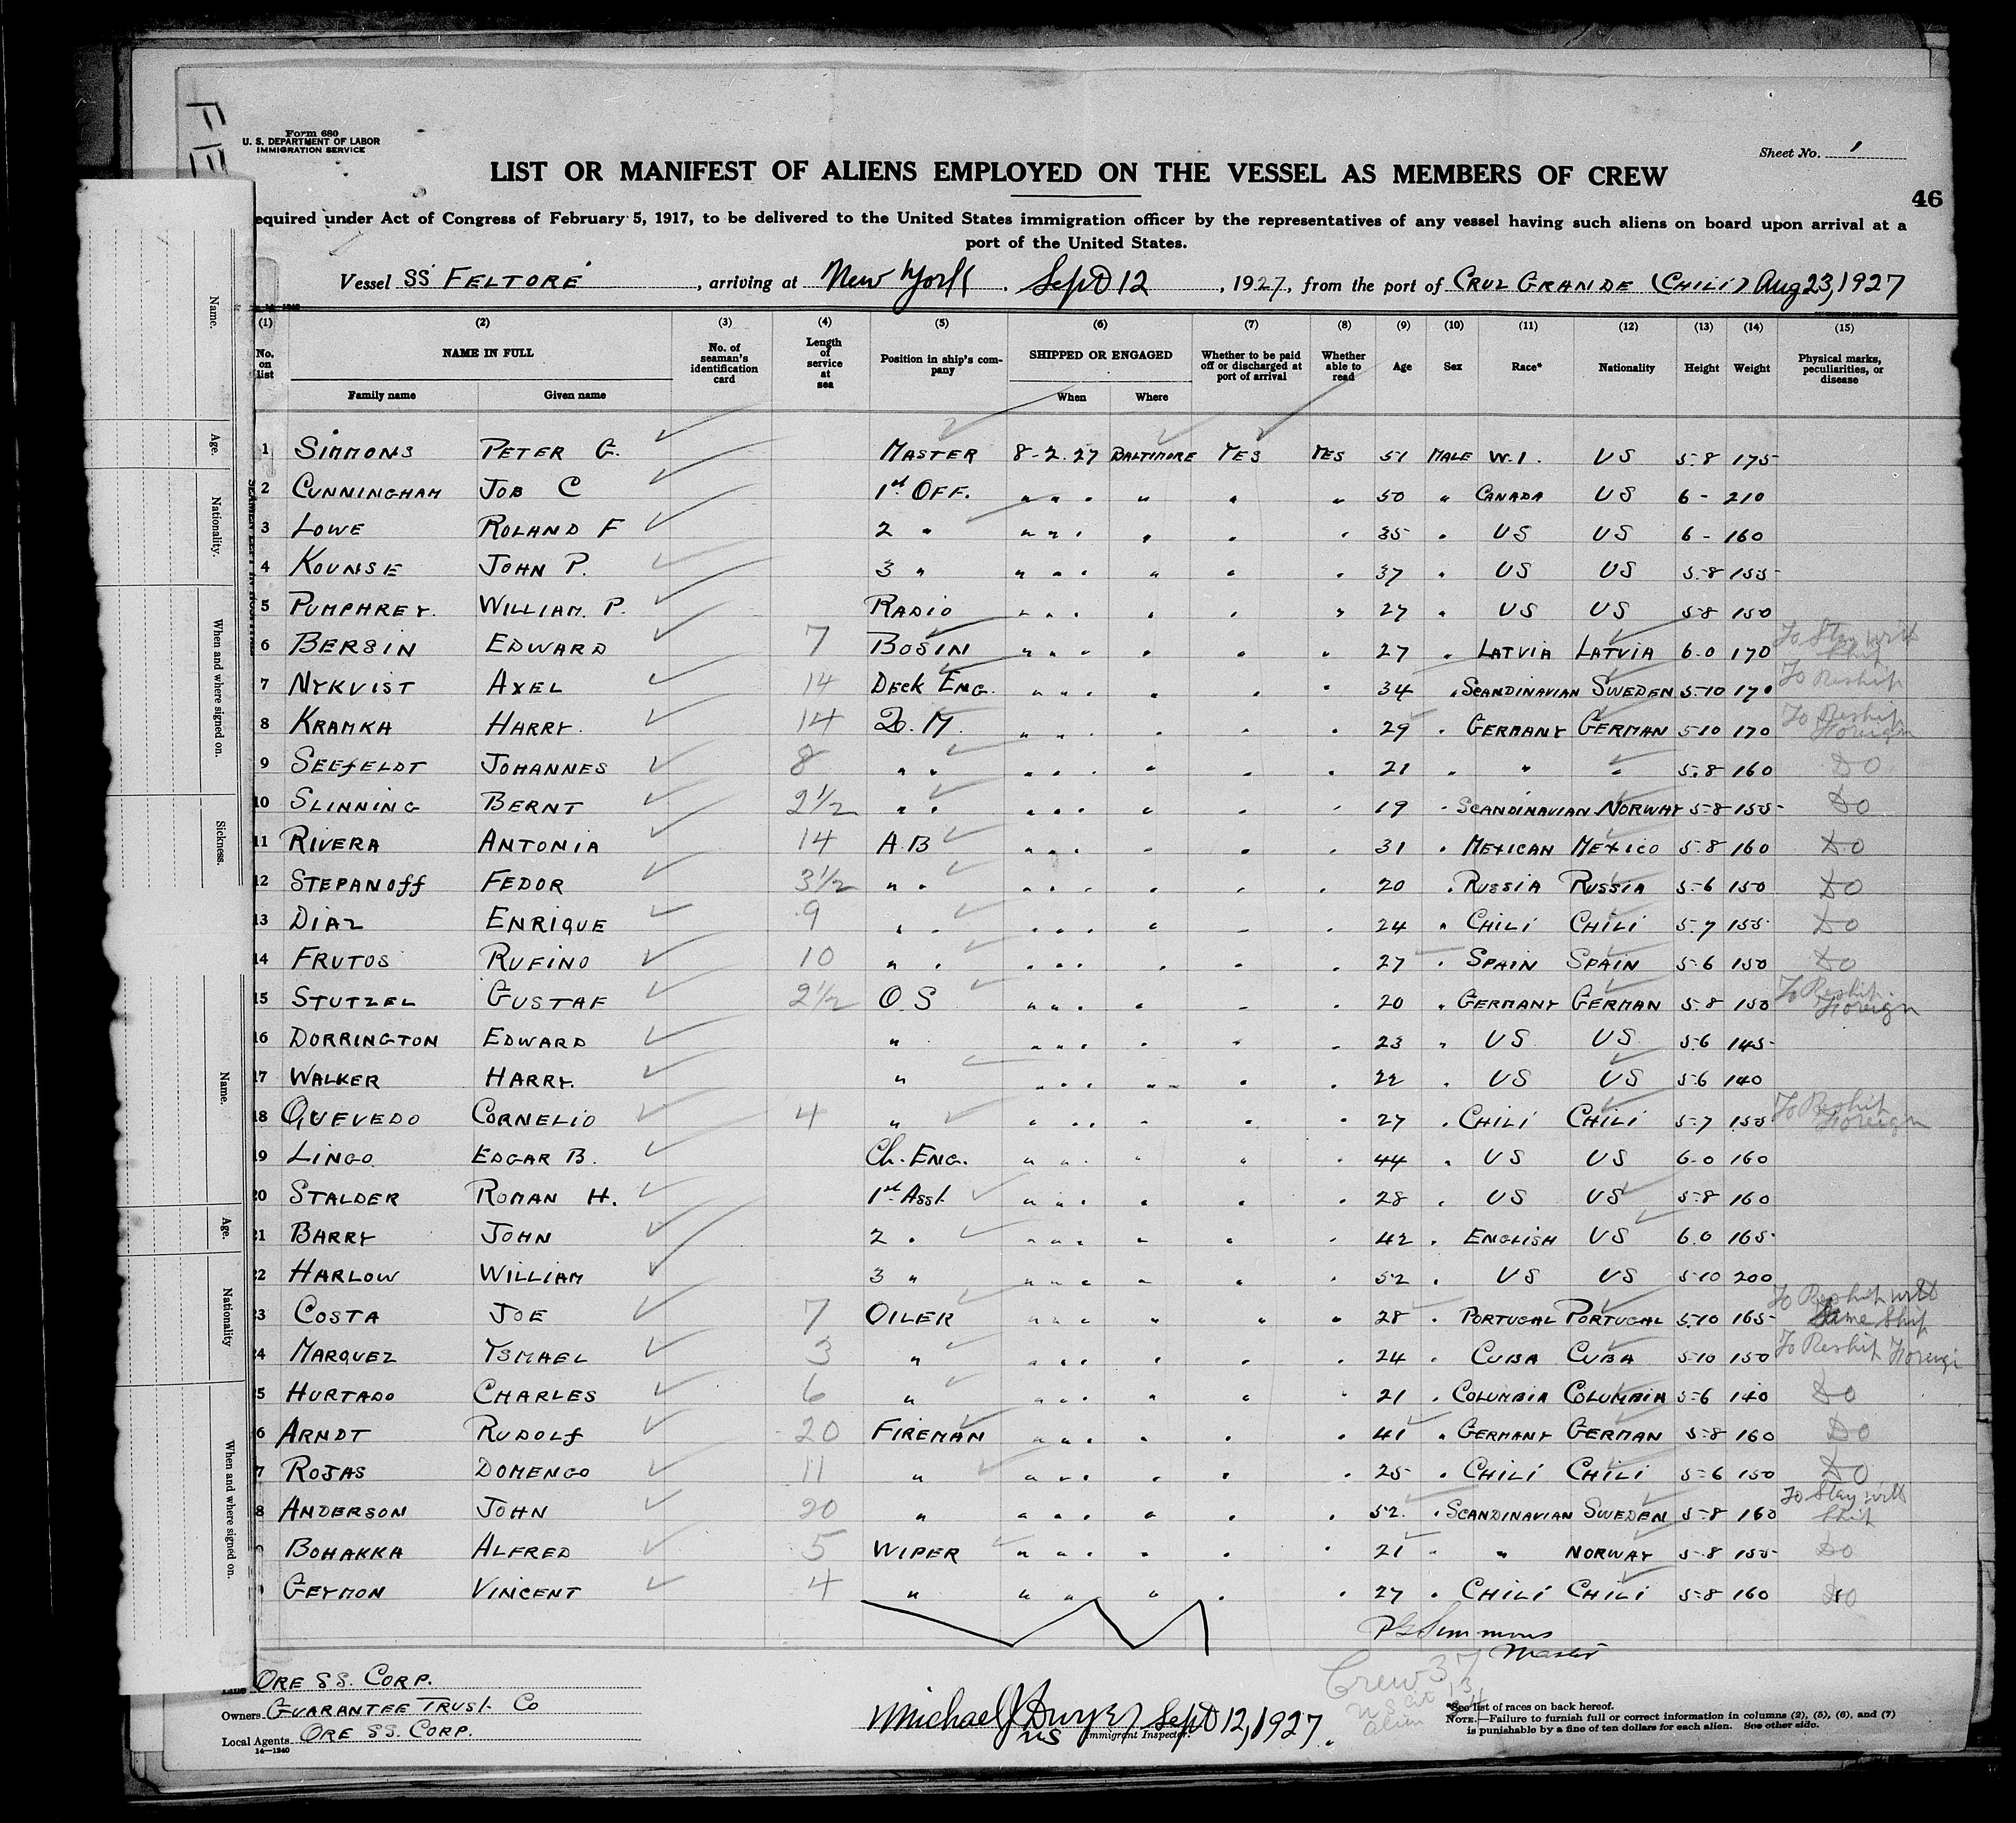 FE
Form 680
U. S. DEPARTMENT OF LABOR
IMMIGRATION SERVICE
Sheet No. 1
LIST OR MANIFEST OF ALIENS EMPLOYED ON THE VESSEL AS MEMBERS OF CREW
46
equired under Act of Congress of February 5, 1917, to be delivered to the United States immigration officer by the representatives of any vessel having such aliens on board upon arrival at a
port of the United States.
Vessel SS FELTORE , arriving at New York . Sept 12 , 1927, from the port of CRUZ GRANDE (CHILI) Aug 23, 1927
(1) (2) (3) (4) (5) (6) (7) (8) (9) (10) (11) (12) (13) (14) (15)
No. on list NAME IN FULL Family name Given name No. of seaman's identification card Length of service at sea Position in ship's company SHIPPED OR ENGAGED When Where Whether to be paid off or discharged at port of arrival Whether able to read Age Sex Race* Nationality Height Weight Physical marks, peculiarities, or disease
1 SIMMONS PETER G. MASTER 8-2.27 BALTIMORE YES YES 51 MALE W.I. US 5-8 175
2 CUNNINGHAM JOB C 1st OFF. " " " " " " 50 " CANADA US 6- 210
3 LOWE ROLAND F 2 " " " " " " " 35 " US US 6- 160
4 KOUNSE JOHN P. 3 " " " " " " " 37 " US US 5-8 155
5 PUMPHREY. WILLIAM. P. RADIO " " " " " " 27 " US US 5-8 150
6 BERSIN EDWARD 7 BOSIN " " " " " " 27 " LATVIA LATVIA 6-0 170 To Stay with Ship
7 NYKVIST AXEL 14 DECK ENG. " " " " " " 34 " SCANDINAVIAN SWEDEN 5-10 170 To Reship
8 KRAMKA HARRY. 14 Q. M. " " " " " " 29 " GERMANY GERMAN 5-10 170 To Reship Foreign
9 SEEFELDT JOHANNES 8 " " " " " " " " 21 " " " 5-8 160 DO
10 SLINNING BERNT 2 1/2 " " " " " " " " 19 " SCANDINAVIAN NORWAY 5-8 155 DO
11 RIVERA ANTONIA 14 A.B " " " " " " 31 " MEXICAN MEXICO 5-8 160 DO
12 STEPANOFF FEDOR 3 1/2 " " " " " " " " 20 " RUSSIA RUSSIA 5-6 150 DO
13 DIAZ ENRIQUE 9 " " " " " " " " 24 " CHILI CHILI 5-7 155 DO
14 FRUTOS RUFINO 10 " " " " " " " " 27 " SPAIN SPAIN 5-6 150 DO
15 STUTZEL GUSTAF 2 1/2 O.S " " " " " " 20 " GERMANY GERMAN 5-8 150 To Reship Foreign
16 DORRINGTON EDWARD " " " " " " " 23 " US US 5-6 145
17 WALKER HARRY. " " " " " " " 22 " US US 5-6 140
18 QUEVEDO CORNELIO 4 " " " " " " " 27 " CHILI CHILI 5-7 155 To Reship Foreign
19 LINGO EDGAR B. Ch. ENG. " " " " " 44 " US US 6-0 160
20 STALDER ROMAN H. 1st Asst. " " " " " " 28 " US US 5-8 160
21 BARRY JOHN 2 " " " " " " " 42 " ENGLISH US 6.0 165
22 HARLOW WILLIAM 3 " " " " " " " 52 " US US 5-10 200
23 COSTA JOE 7 OILER " " " " " " 28 " PORTUGAL PORTUGAL 5-10 165 To Reship with Same Ship
24 MARQUEZ YSMAEL 3 " " " " " " " 24 " CUBA CUBA 5-10 150 To Reship Foreign
25 HURTADO CHARLES 6 " " " " " " " 21 " COLUMBIA COLUMBIA 5-6 140 DO
6 ARNDT RUDOLF 20 FIREMAN " " " " " " 41 " GERMANY GERMAN 5-8 160 DO
7 ROJAS DOMENGO 11 " " " " " " " 25 " CHILI CHILI 5-6 150 DO
8 ANDERSON JOHN 20 " " " " " " " 52 " SCANDINAVIAN SWEDEN 5-8 160 To Stay with Ship
BOHAKKA ALFRED 5 WIPER " " " " " " 21 " " NORWAY 5-8 155 DO
GEYMON VINCENT 4 " " " " " " 27 " CHILI CHILI 5-8 160 DO
PG Simmons
Master
Crew 37
US Cit 13
Alien 24
Line ORE SS. CORP.
Owners GUARANTEE TRUST CO
Local Agents ORE SS. CORP.
14-1240
Michael J Dwyer Sept 12, 1927.
US Immigrant Inspector.
*See list of races on back hereof.
NOTE.—Failure to furnish full or correct information in columns (2), (5), (6), and (7)
is punishable by a fine of ten dollars for each alien. See other side.
Name.
Age.
Nationality.
When and where signed on.
Sickness.
Name.
Age.
Nationality
When and where signed on.